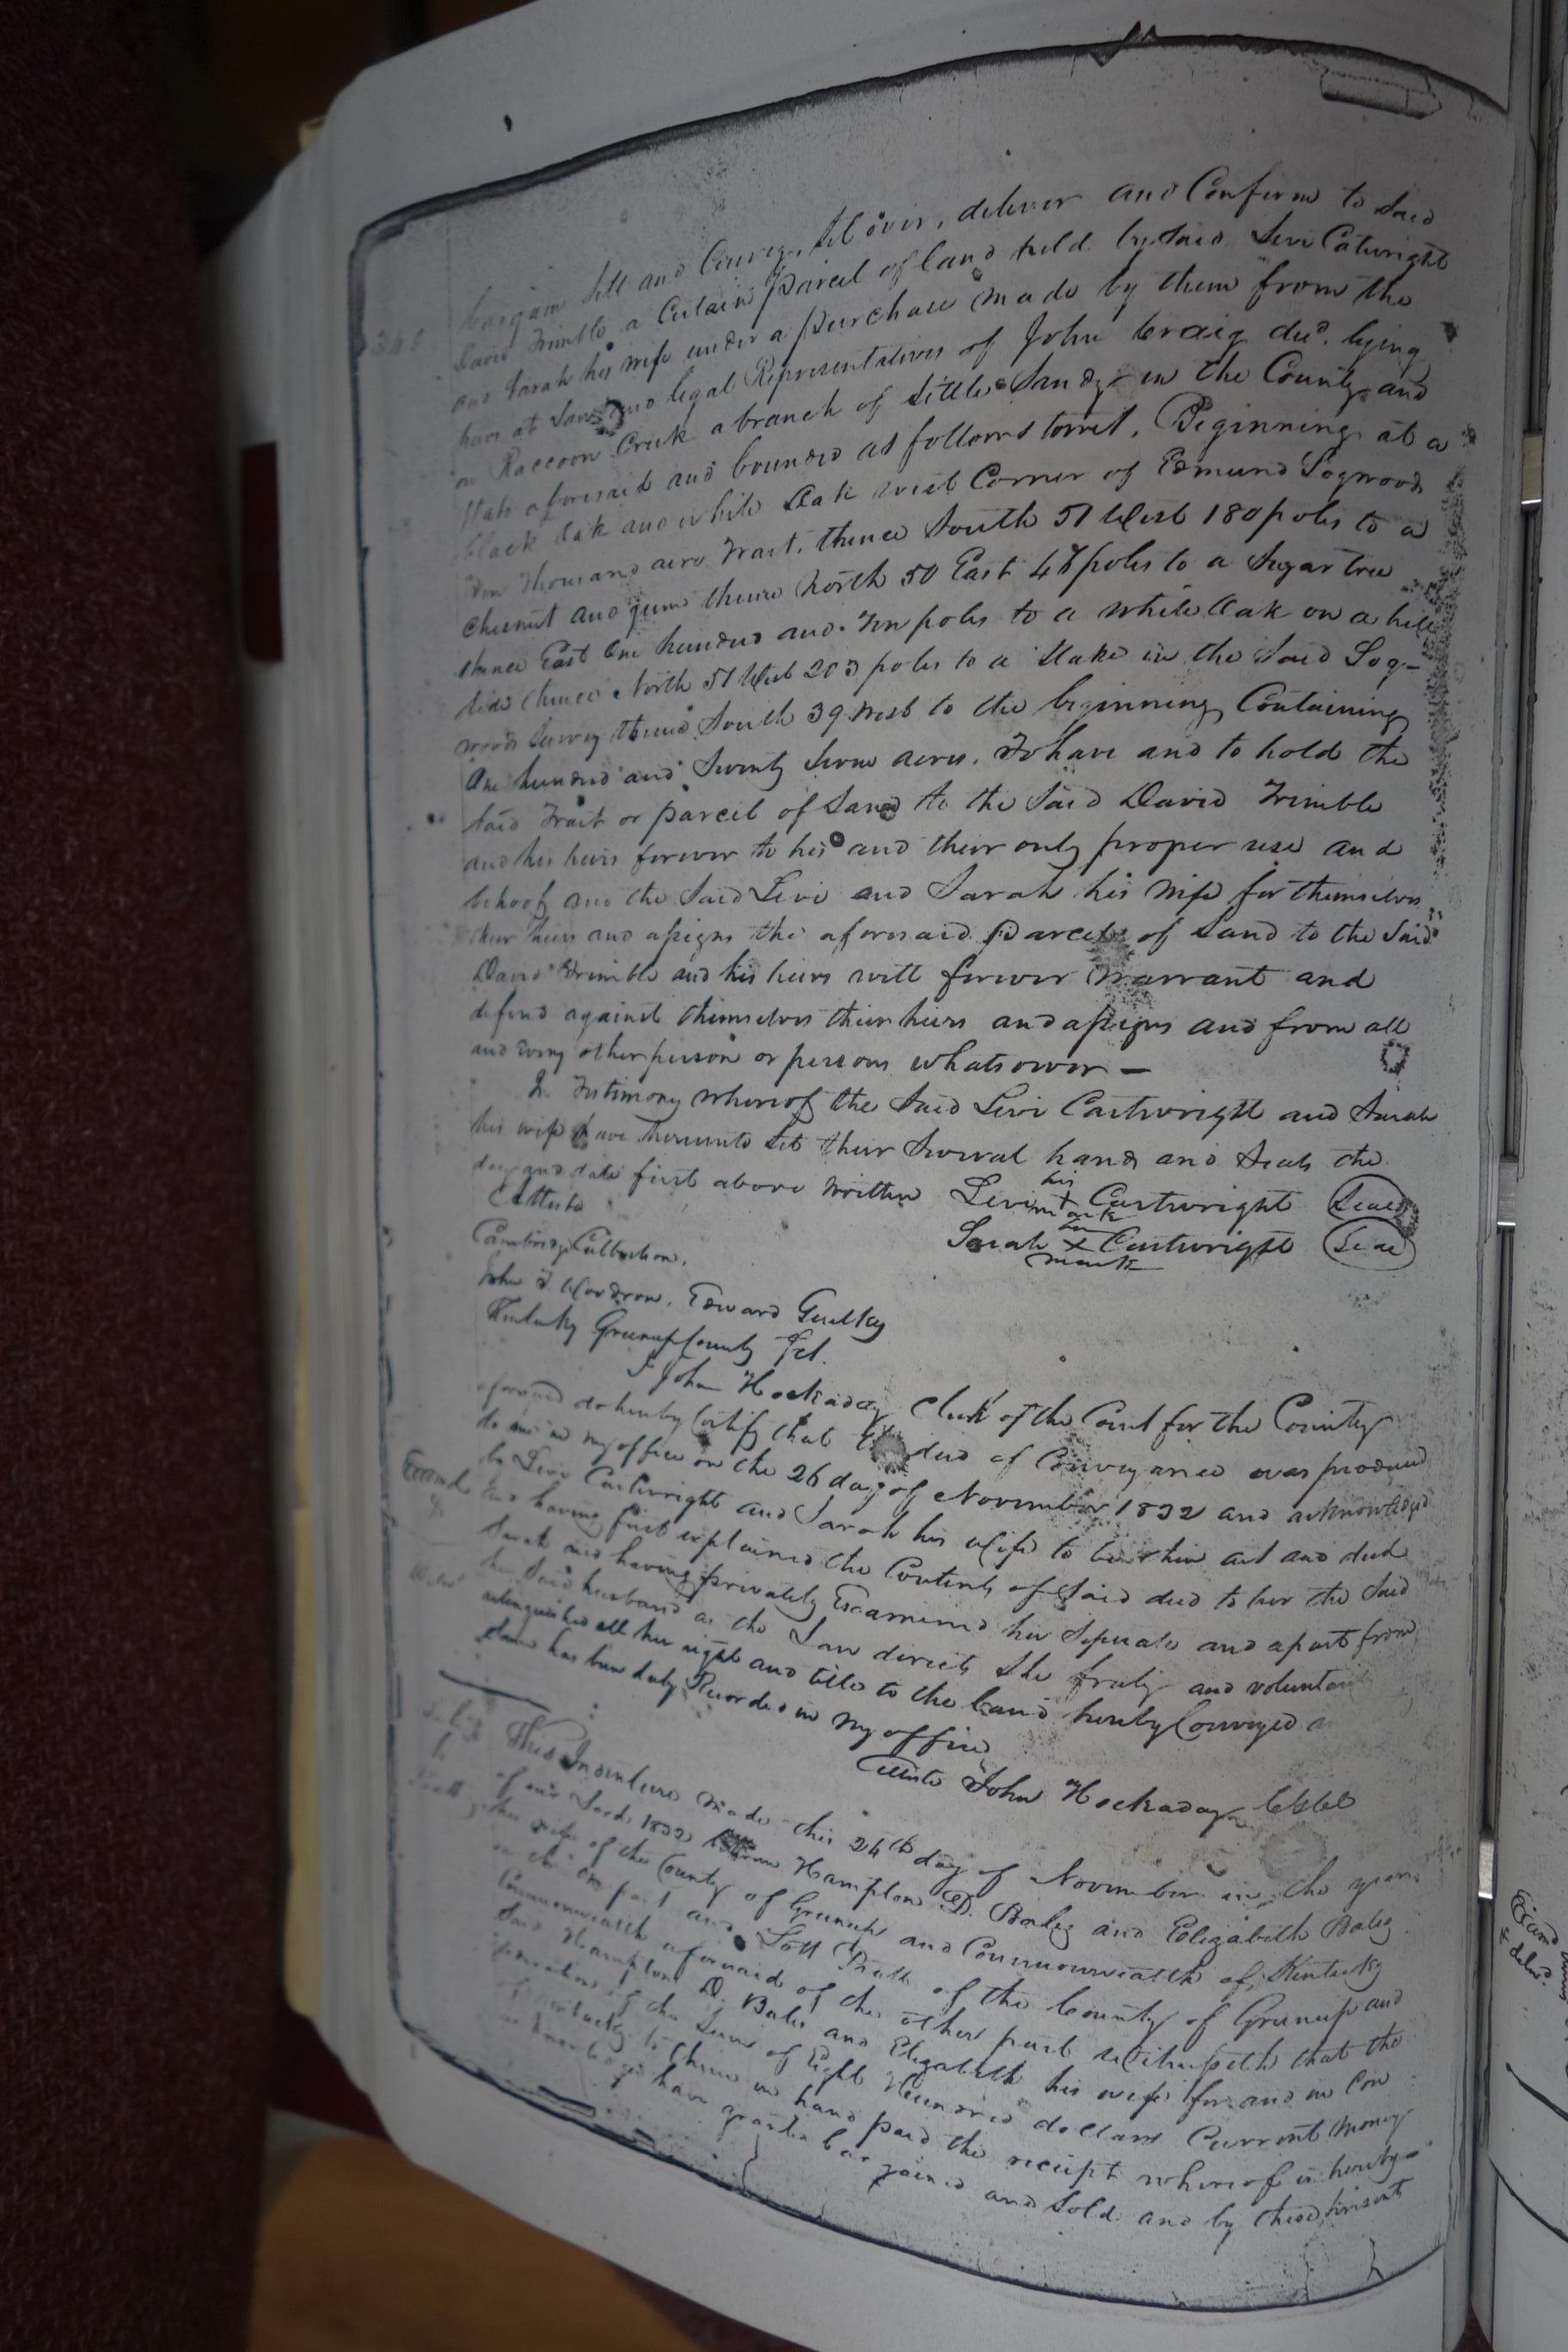 bargain sell and Convey, set over, deliver and Confirm to said
David Trimble a Certain parcel of land held by said Levi Catwright
and Sarah his wife under a purchase made by them from the
heirs at Law and legal Representatives of John Craig decd. lying
on Raccoon Creek a branch of Little Sandy in the County and
State aforesaid and bounded as follows towit, Beginning at a
black Oak and white Oak west Corner of Edmund Logwoods
Ten Thousand acre Tract, thence South 51 West 180 poles to a
Chesnut and gum thence North 50 East 48 poles to a Sugar tree
thence East One hundred and Ten poles to a white Oak on a hill
side thence North 51 West 203 poles to a Stake in the said Log-
woods Survey thence South 39 West to the beginning Containing
One hundred and Seventy Seven acres. To have and to hold the
said Tract or parcel of Land to the Said David Trimble
and his heirs forever to his and their only proper use and
behoof and the Said Levi and Sarah his wife for themselves
their heirs and assigns the aforesaid parcel of Land to the Said
David Trimble and his heirs will forever warrant and
defend against themselves their heirs and assigns and from all
and every other person or persons whatsoever —
In Testimony whereof the Said Levi Cartwright and Sarah
his wife have hereunto Set their Several hands and Seals the
day and date first above written Levi his + mark Cartwright (Seal)
Attests
Sarah her X mark Cartwright (Seal)
Cambridge Culbertson,
John T. Woodrow, Edward Guilkey
Kentucky Greenup County Sct.
I John Hockaday Clerk of the Court for the County
aforesaid do hereby Certify that this deed of Conveyance was produced
to me in my office on the 26 day of November 1832 and acknowledged
by Levi Cartwright and Sarah his Wife to be their act and deed
Examd and having first explained the Contents of Said deed to her the Said
&
Sarah and having privately Examined her Seperate and apart from
her Said husband as the Law directs She freely and voluntarily
relinquished all her right and title to the land hereby Conveyed
Same has been duly Recorded in my office
Atteste John Hockaday
This Indenture made this 24th day of November in the year
of our Lord 1832 between Hampton D. Baley and Elizabeth Baley
his wife of the County of Greenup and Commonwealth of Kentucky
on the One part and Pratt of the County of Greenup and
Commonwealth aforesaid of the other part Witnesseth that the
Said Hampton D. Baley and Elizabeth his wife for and in Con
sideration of the Sum of Eight Hundred dollars Current money
of Kentucky to them in hand paid the receipt whereof is hereby
acknowledged have granted bargained and Sold and by these presents